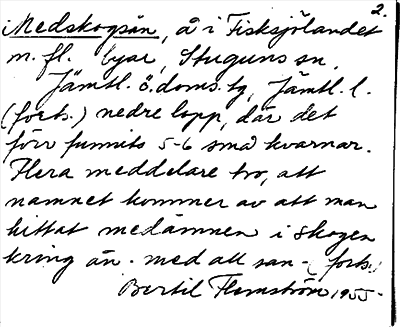 2.
Medskogsån, å i Fisksjölandet
m. fl. byar, Stuguns sn,
Jämtl. ö. doms. tg, Jämtl. l.
(forts.) nedre lopp, där det
förr funnits 5-6 små kvarnar.
Flera meddelare tro, att
namnet kommer av att man
hittat medämnen i skogen
kring ån. med all san- (forts.)
Bertil Flemström 1955-